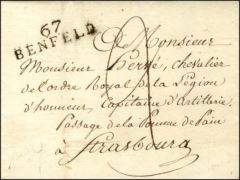 67
BENFELD
A Monsieur
Monsieur Hervé, chevalier
de l'ordre Royal de la Légion
d'honneur, Capitaine d'artillerie,
Passage de la Pomme de Pain
a Strasbourg